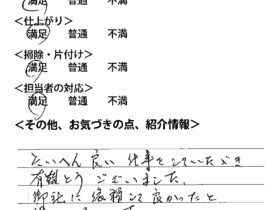 満足 普通 不満
<仕上がり>
満足 普通 不満
<掃除・片付け>
満足 普通 不満
<担当者の対応>
満足 普通 不満
<その他、お気づきの点、紹介情報>
たいへん良い 仕事をしていただき
有難とうございました。
御社に依頼して良かったと